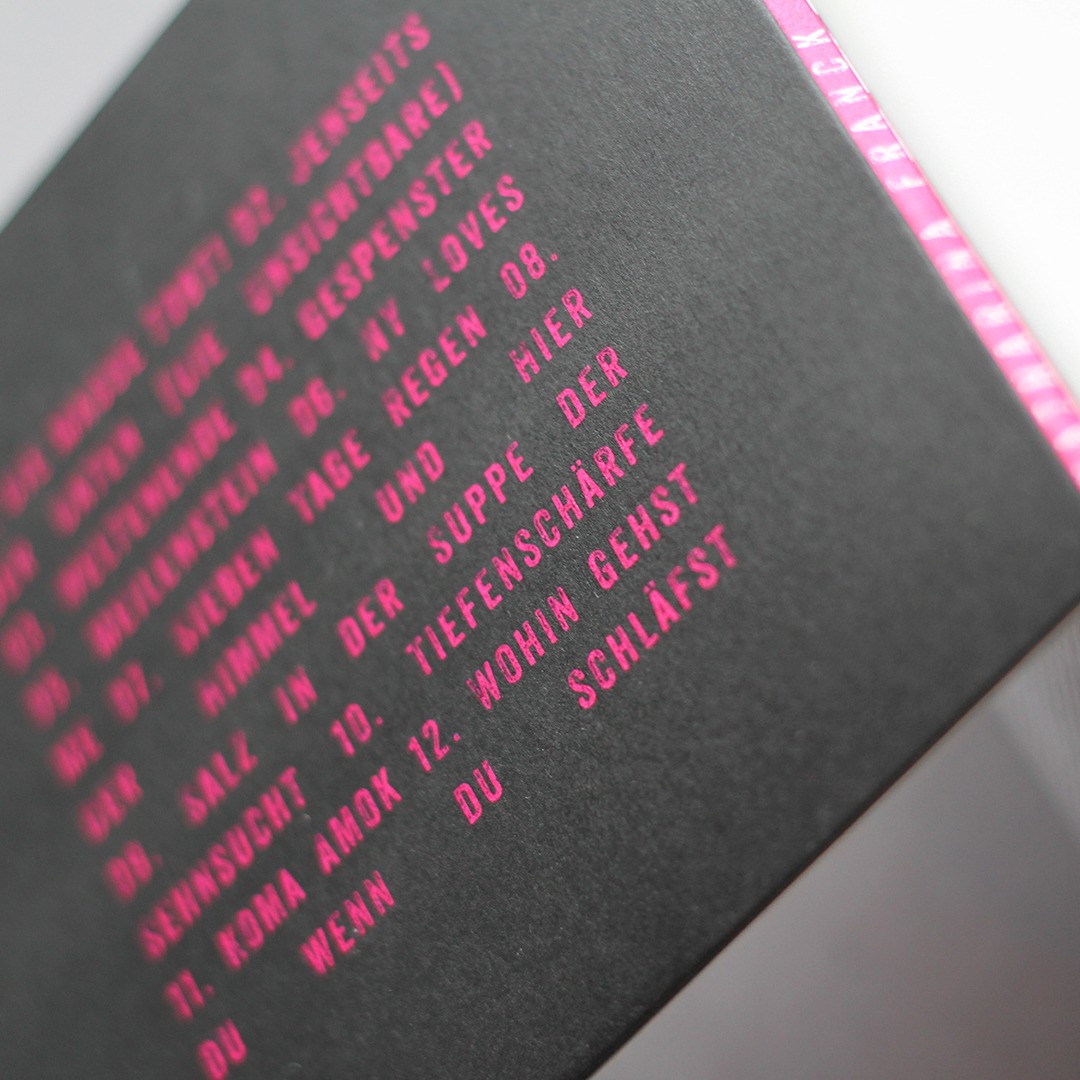 WURDE 02. JENSEITS
DER UNSICHTBARE)
03. WELTENENDE 04. GESPENSTER
05. MEILENSTEIN 06. MY LOVES
ME 07. SIEBEN TAGE REGEN 08.
DER HIMMEL UND HIER
09. SALZ IN DER SUPPE DER
SEHNSUCHT 10. TIEFENSCHÄRFE
11. KOMA AMOK 12. WOHIN GEHST
DU WENN DU SCHLÄFST
THARINA FRANCK